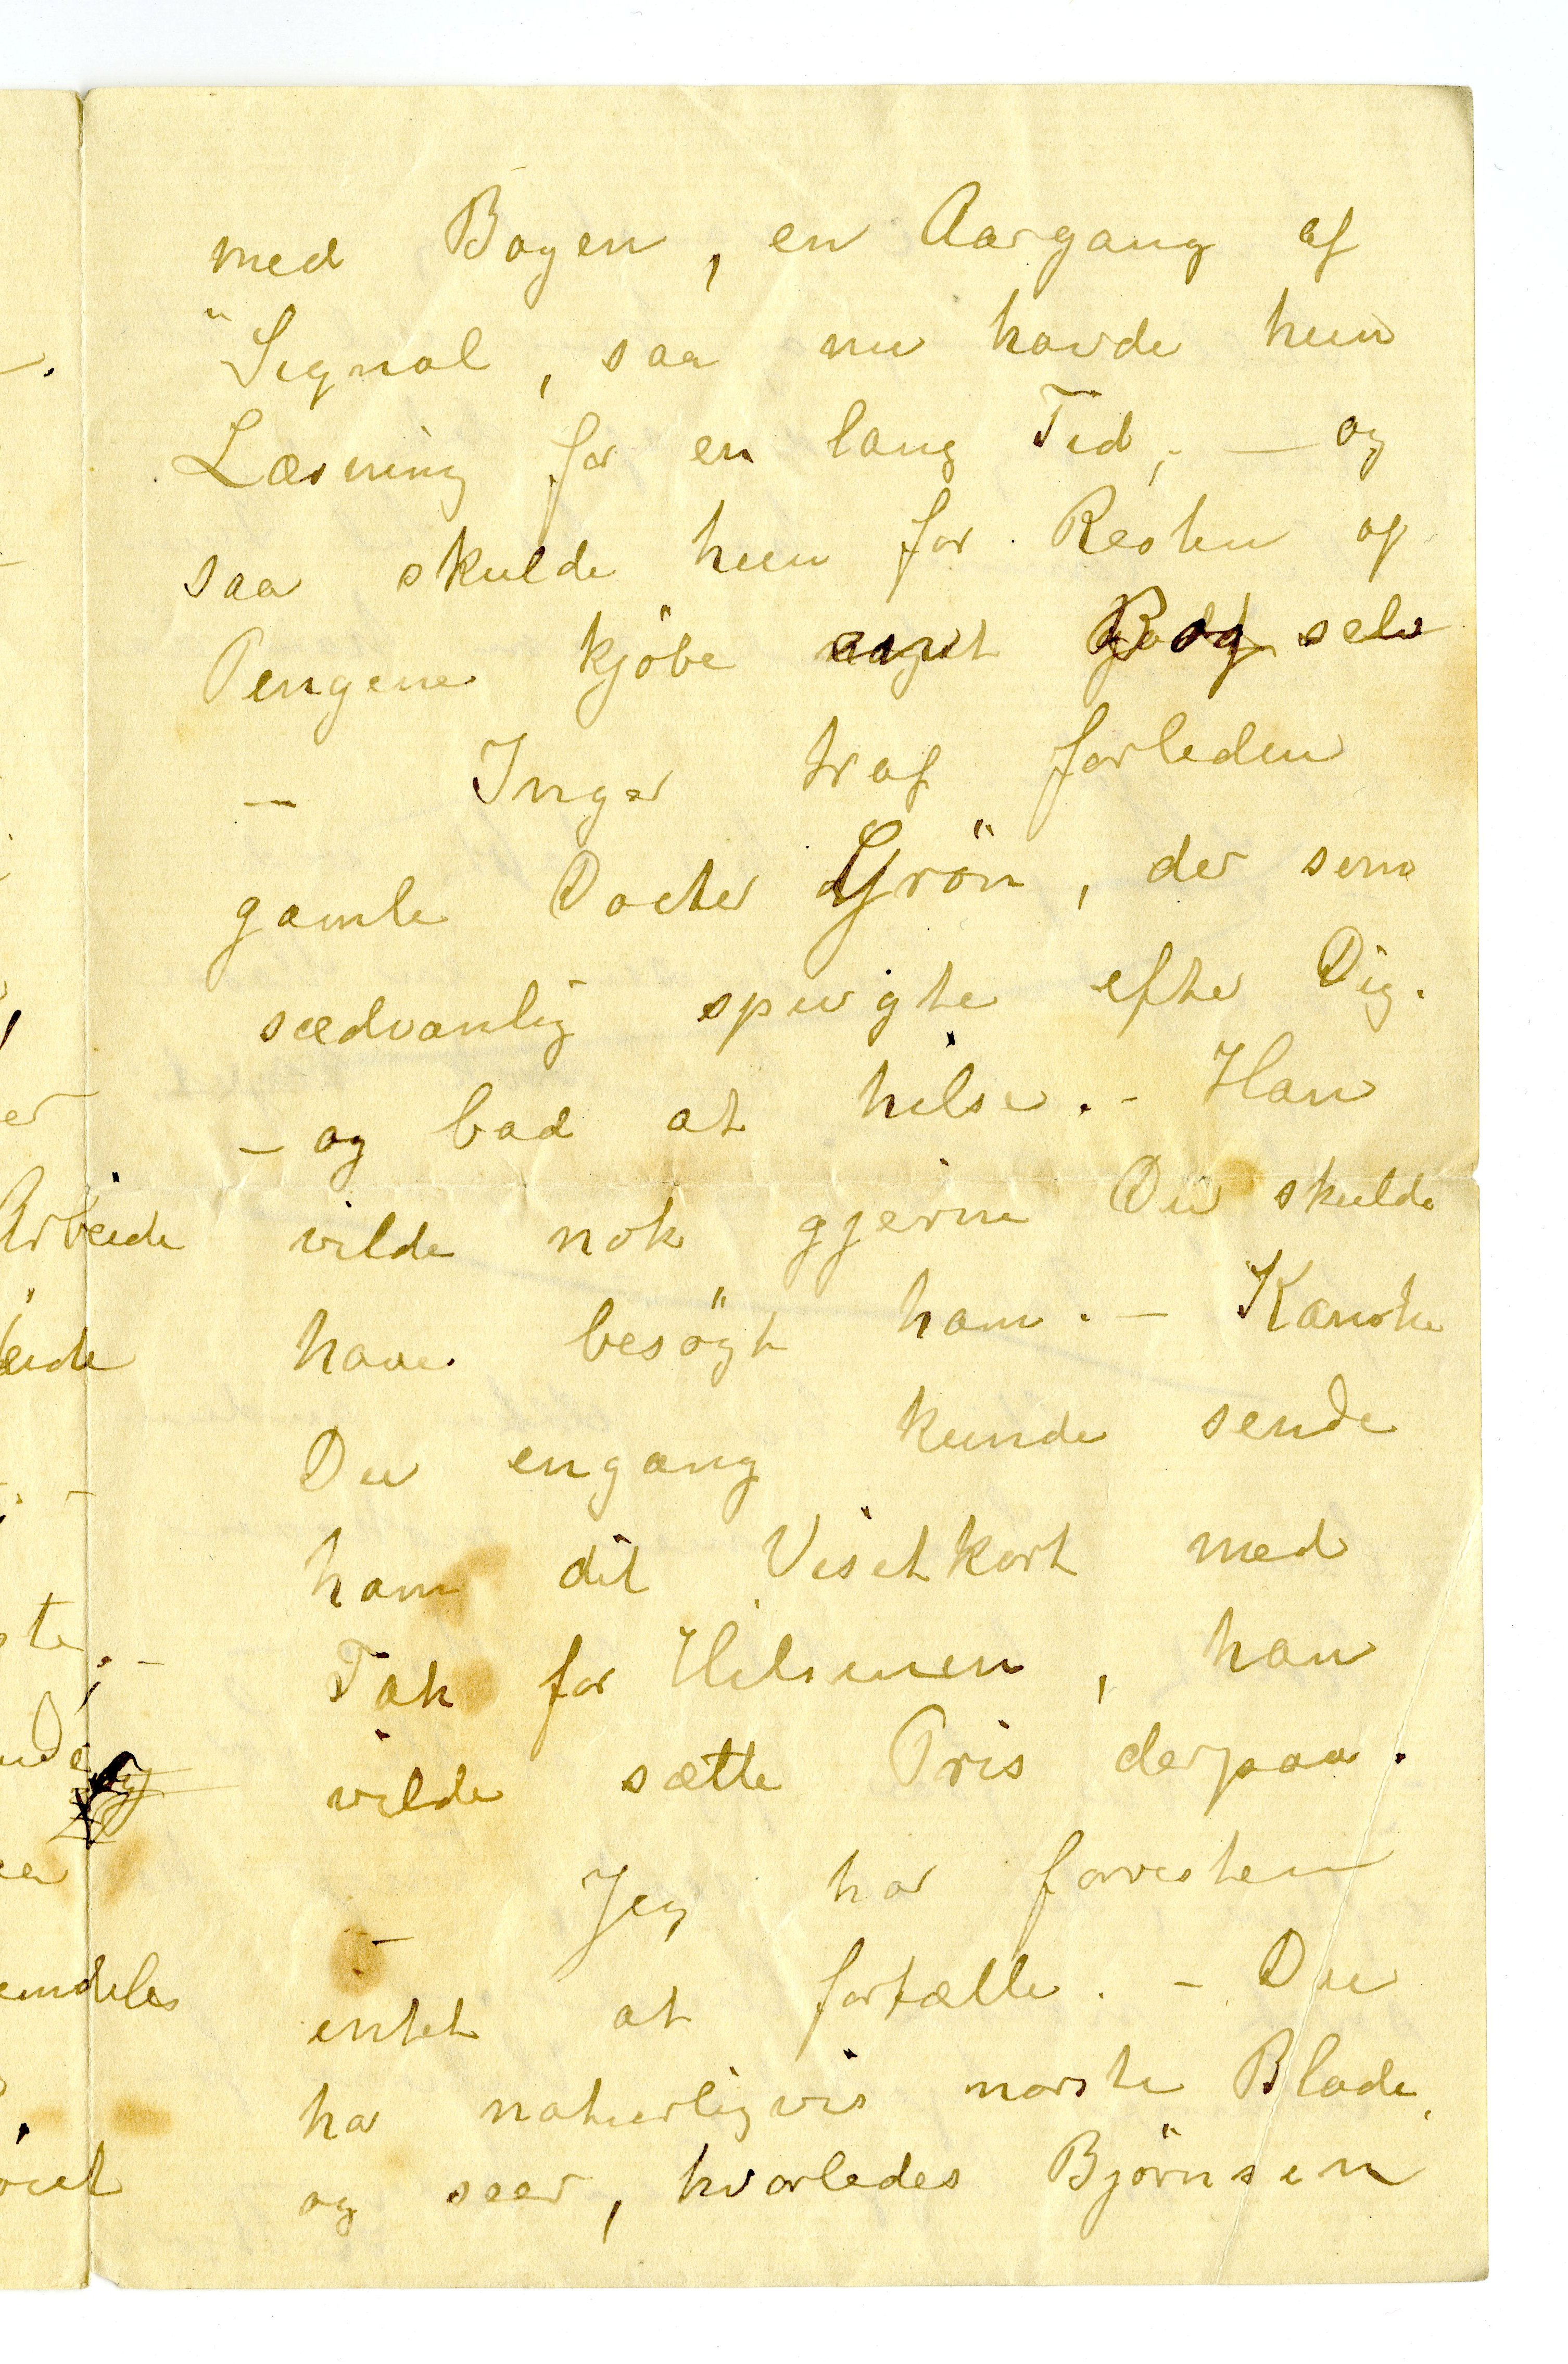 med Bogen, en Aargang af
"Signal, saa nu havde hun
Læsning for en lang Tid; — og
saa skulde hun for Resten af
Pengene kjöbe noget godt selv
— Inger traf forleden
gamle Doctor Grön, der som
sædvanlig spurgte efter Dig.
– og bad at hilse. – Han
vilde nok gjerne Du skulde
have besögt ham. – Kanske
Du engang kunde sende
ham dit Visitkort med
Tak for Hilsenen, han
vilde sætte Pris derpaa.
– Jeg har forresten
intet at fortælle. – Du
har naturligvis norske Blade,
og seer, hvorledes Björnsen
Arbeide